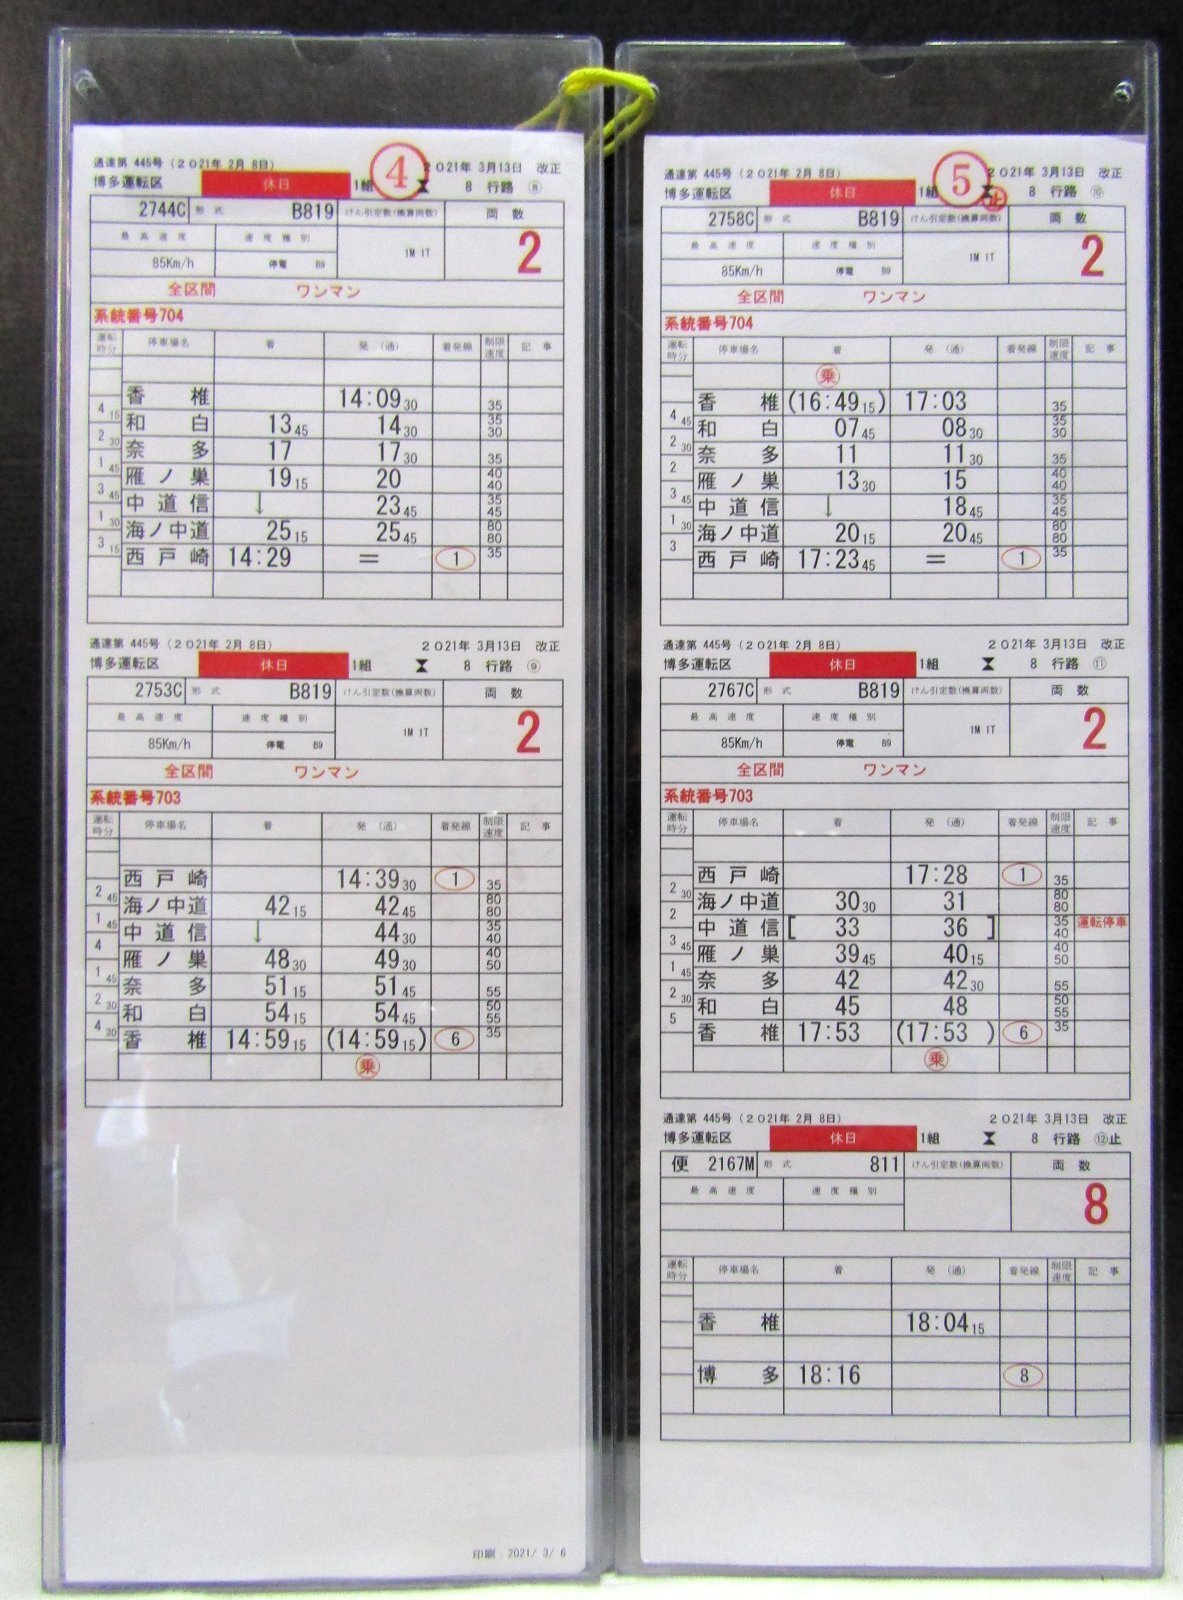 ④
通達第 445号(2021年 2月 8日) 2021年 3月13日 改正
博多運転区 休日 1組 8 行路 ⑧
2744C 形式 B819 けん引定数(換算両数) 両数
最高速度 速度種別 1M 1T 2
85Km/h 停電 B9
全区間 ワンマン
系統番号704
運転時分 停車場名 着 発(通) 着発線 制限速度 記事
香椎 14:09 30 35
4 15
和白 13 45 14 30 35 30
2 30
奈多 17 17 30 35
1 45
雁ノ巣 19 15 20 40 40
3 45
中道信 ↓ 23 45 35 45
1 30
海ノ中道 25 15 25 45 80 80
3 15
西戸崎 14:29 = 1 35
通達第 445号(2021年 2月 8日) 2021年 3月13日 改正
博多運転区 休日 1組 8 行路 ⑨
2753C 形式 B819 けん引定数(換算両数) 両数
最高速度 速度種別 1M 1T 2
85Km/h 停電 B9
全区間 ワンマン
系統番号703
運転時分 停車場名 着 発(通) 着発線 制限速度 記事
西戸崎 14:39 30 1 35
2 45
海ノ中道 42 15 42 45 80 80
1 45
中道信 ↓ 44 30 35 40
4
雁ノ巣 48 30 49 30 40 50
1 45
奈多 51 15 51 45 55
2 30
和白 54 15 54 45 50 55
4 30
香椎 14:59 15 (14:59 15) 6 35
乗
印刷:2021/ 3/ 6
⑤
通達第 445号(2021年 2月 8日) 2021年 3月13日 改正
博多運転区 休日 1組 止 8 行路 ⑩
2758C 形式 B819 けん引定数(換算両数) 両数
最高速度 速度種別 1M 1T 2
85Km/h 停電 B9
全区間 ワンマン
系統番号704
運転時分 停車場名 着 発(通) 着発線 制限速度 記事
乗
香椎 (16:49 15) 17:03 35
4 45
和白 07 45 08 30 35 30
2 30
奈多 11 11 30 35
2
雁ノ巣 13 30 15 40 40
3 45
中道信 ↓ 18 45 35 45
1 30
海ノ中道 20 15 20 45 80 80
3
西戸崎 17:23 45 = 1 35
通達第 445号(2021年 2月 8日) 2021年 3月13日 改正
博多運転区 休日 1組 8 行路 ⑪
2767C 形式 B819 けん引定数(換算両数) 両数
最高速度 速度種別 1M 1T 2
85Km/h 停電 B9
全区間 ワンマン
系統番号703
運転時分 停車場名 着 発(通) 着発線 制限速度 記事
西戸崎 17:28 1 35
2 30
海ノ中道 30 30 31 80 80
2
中道信 [ 33 36 ] 35 40 運転停車
3 45
雁ノ巣 39 45 40 15 40 50
1 45
奈多 42 42 30 55
2 30
和白 45 48 50 55
5
香椎 17:53 (17:53 ) 6 35
乗
通達第 445号(2021年 2月 8日) 2021年 3月13日 改正
博多運転区 休日 1組 8 行路 ⑫止
便 2167M 形式 811 けん引定数(換算両数) 両数
最高速度 速度種別 8
運転時分 停車場名 着 発(通) 着発線 制限速度 記事
香椎 18:04 15
博多 18:16 8